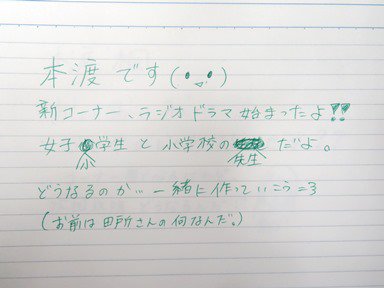 本渡です(•ᴗ•)
新コーナー、ラジオドラマ始まったよ!!
女子小学生と小学校の先生だよ。
どうなるのか…一緒に作っていこう=3
(お前は田所さんの何なんだ。)